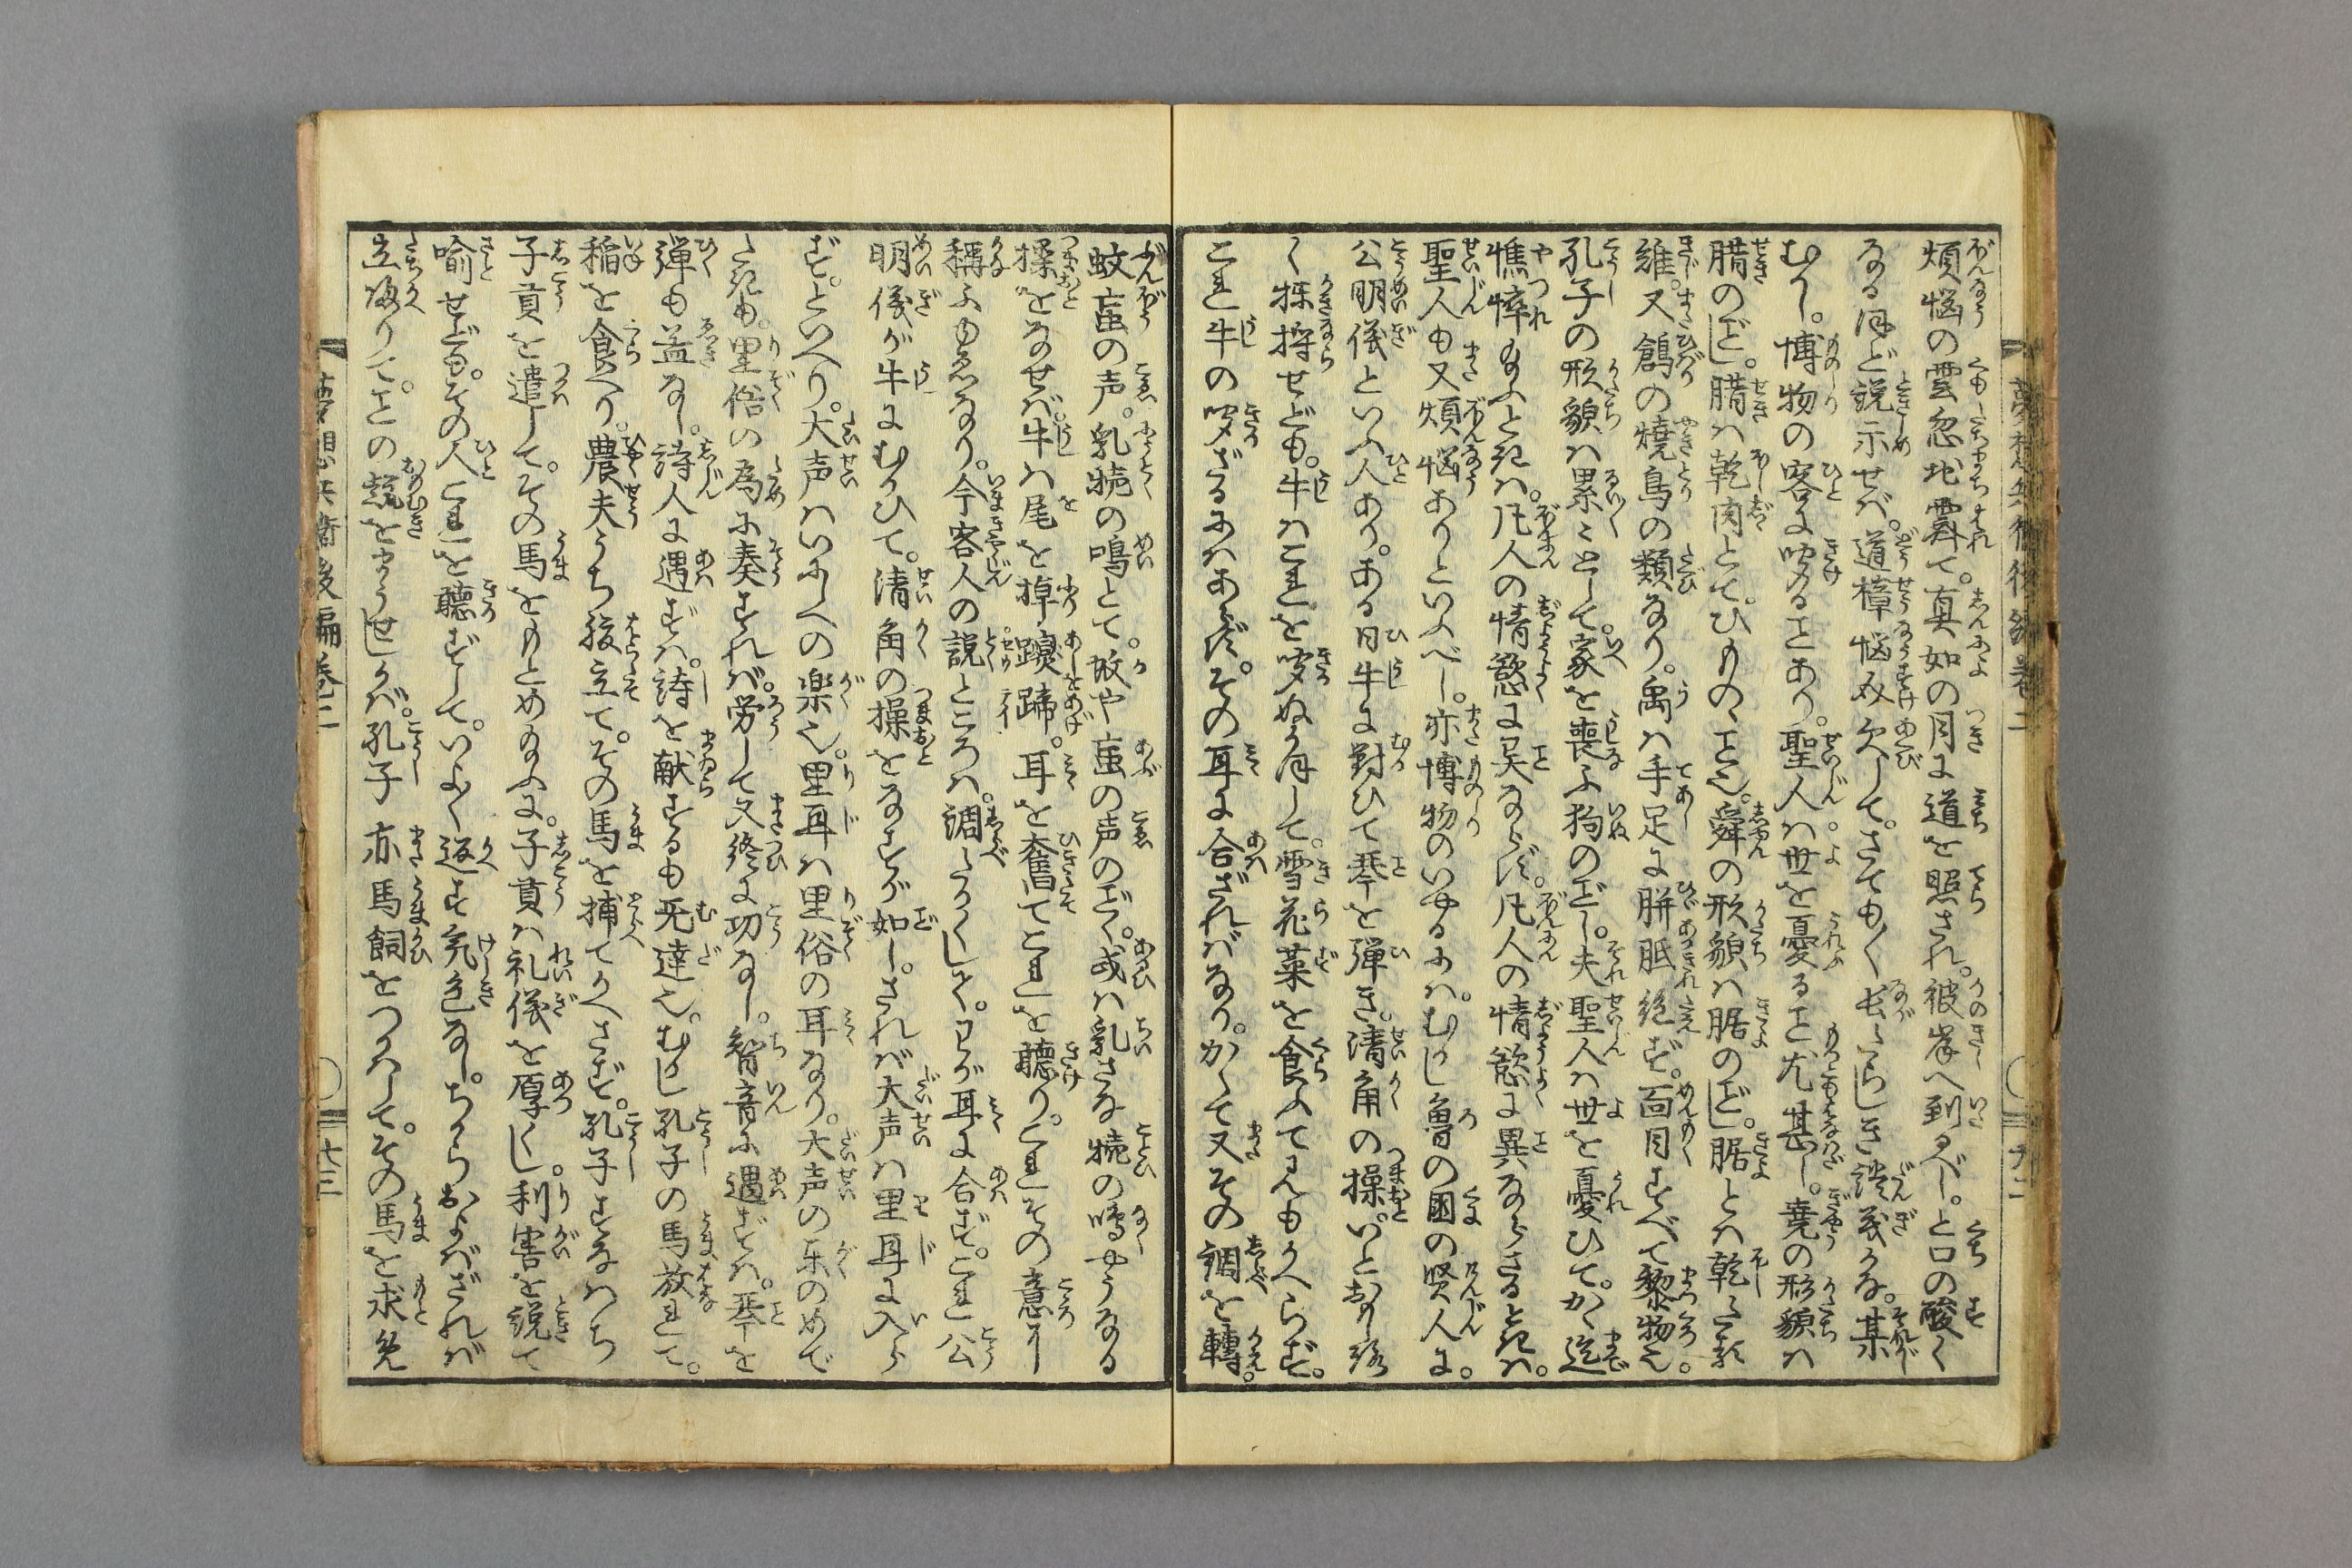 煩悩の雲忽地霽て。真如の月に道を照され。彼岸へ到るべし。と口の酸く
なる程ど説示せば。道樟悩み欠して。さても〳〵長〳〵しき談義かな。某
むかし。博物の客に聞ることあり。聖人は世を憂ること尤甚し。堯の形貌は
腊のごとし。腊は乾肉とて。ひもの也。舜の形貌は腒のごとし。腒とは乾たる
雉。又鶬の焼鳥の類なり。禹は手足に胼胝絶ず。面目すべて黎物也。
孔子の形貌は累々として。家を喪ふ狗のごとし。夫聖人は世を憂ひて。かく迄
憔悴給ふときは。凡人の情慾に異ならず。凡人の情慾に異ならざるときは。
聖人も又煩悩ありといふべし。亦博物のいへるには。むかし魯の国の賢人に。
公明儀といふ人あり。ある日牛に対ひて琴を弾き。清角の操。いとおもしろ
く掻捋せども。牛はこれを聞ぬ体して。雪花菜を食ふて見もかへらず。
これ牛の聞ざるにはあらず。その耳に合ざればなり。かくて又その調を轉。
蚊䖟の声。乳犢の鳴とて。蚊や䖟の声のごとく。或は乳さな犢の鳴やうなる
操をなせば。牛は尾を掉躩蹄。耳を奮てこれを聴り。これその意に
稱ふゆゑなり。今客人の説ところは。調たかくして。わが耳に合ず。これ公
明儀が牛にむかひて。清角の操をなすが如し。されば大声は里耳に入ら
ず。といへり。大声はいにしへの楽也。里耳は里俗の耳なり。大声の楽のめで
たきも。里俗の為に奏すれば。労して又終に功なし。智音に遇ずは。琴を
弾も益なし。詩人に遇ずは。詩を献ずるも无達也。むかし孔子の馬放れて。
稲を食へり。農夫うち腹立て。その馬を捕てかへさず。孔子すなはち
子貢を遣して。その馬をもとめ給ふに。子貢は礼儀を厚くし。利害を説て
喩せども。その人これを聴ずして。いよ〳〵返す気色なし。ちからおよばざれば
立帰りて。ことの趣をまうせしかば。孔子亦馬飼をつかはして。その馬を求給
夢想兵衛後編巻二